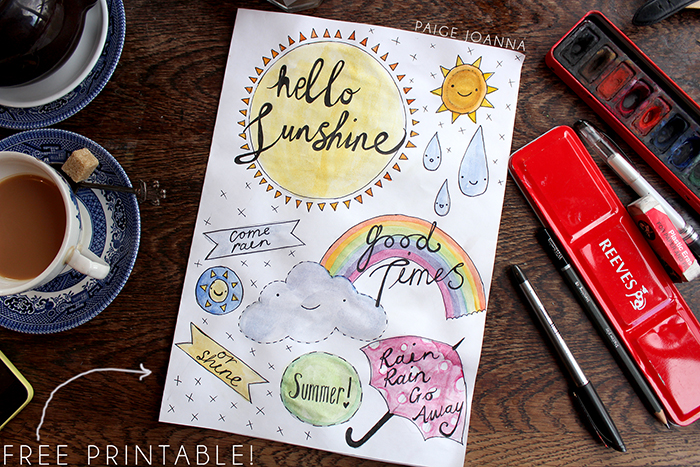 PAIGE JOANNA
hello
Sunshine
come
rain
good
Times
or
shine
Summer!
Rain
Rain
Go
Away
REEVES
FREE PRINTABLE!